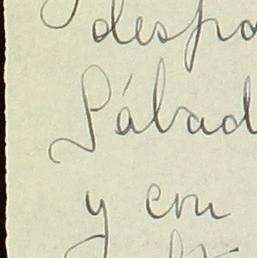 despa
Sábad
y con